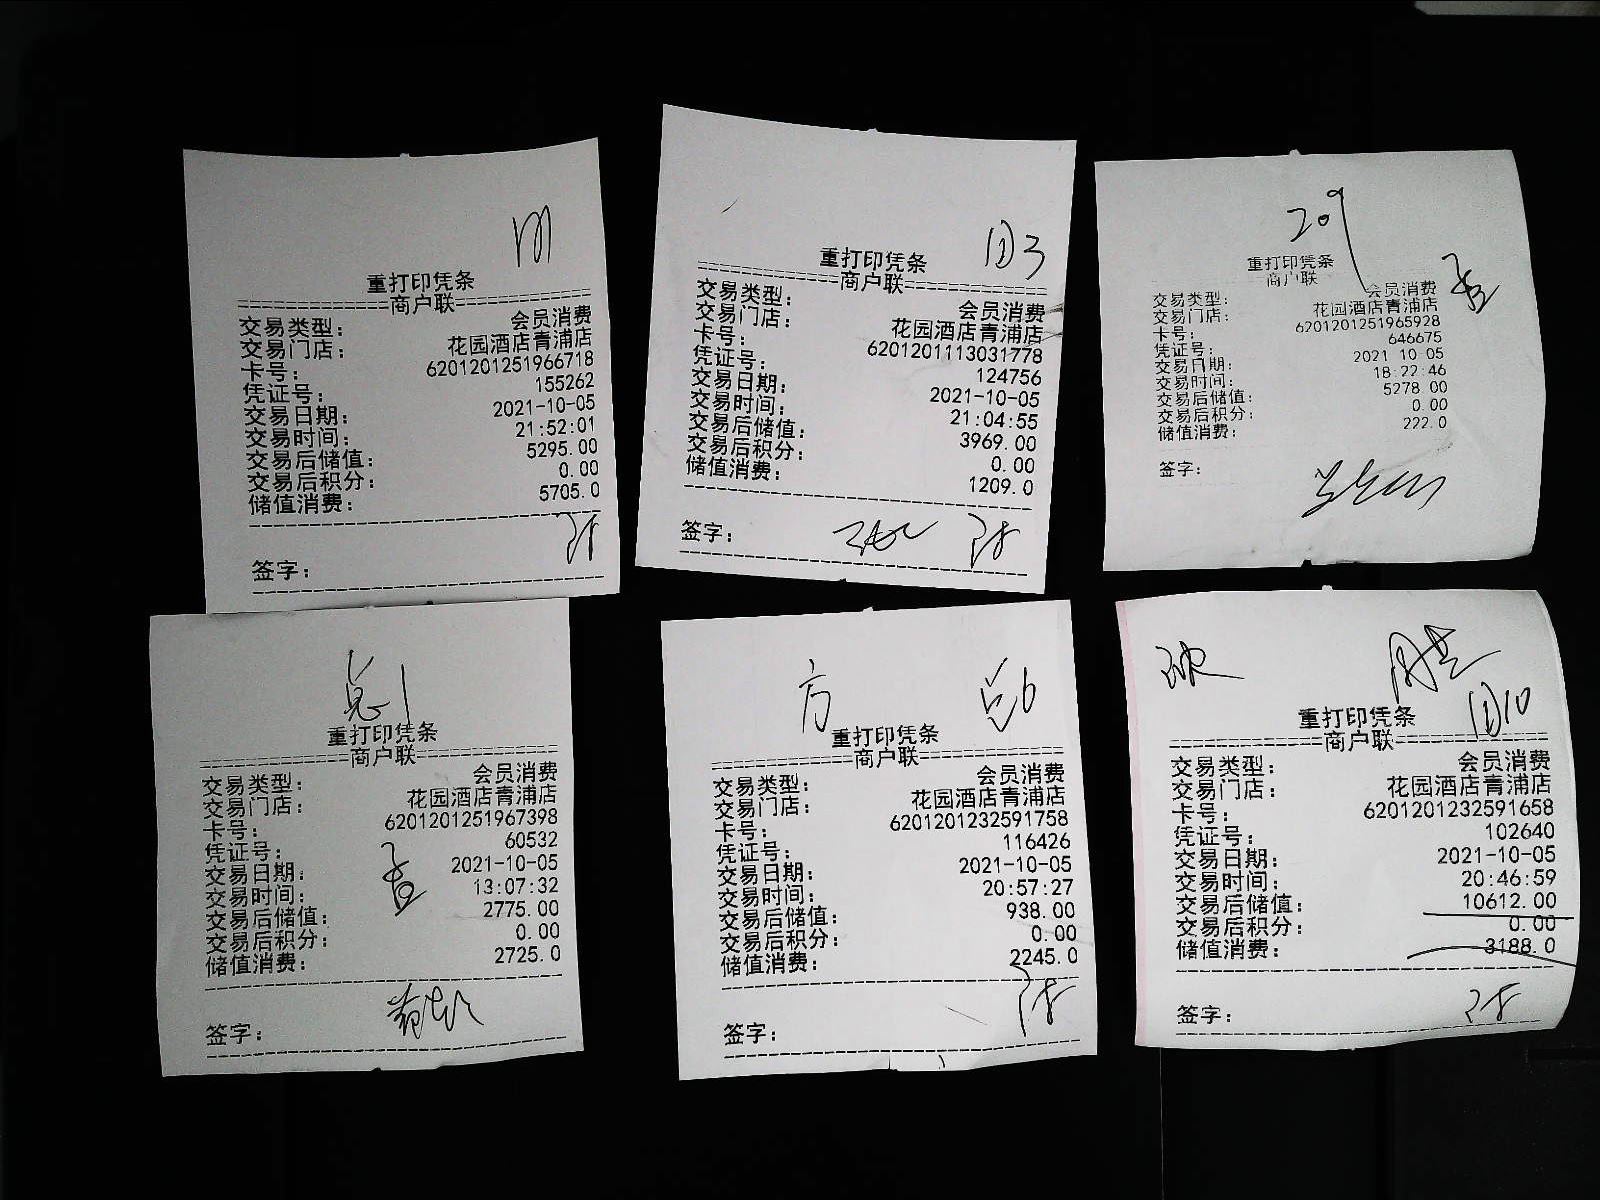 重打印凭条
商户联
交易类型： 会员消费
交易门店： 花园酒店青浦店
卡号： 6201201251966718
凭证号： 155262
交易日期： 2021-10-05
交易时间： 21:52:01
交易后储值： 5295.00
交易后积分： 0.00
储值消费： 5705.0
签字：
重打印凭条
商户联
交易类型： 会员消费
交易门店： 花园酒店青浦店
卡号： 6201201113031778
凭证号： 124756
交易日期： 2021-10-05
交易时间： 21:04:55
交易后储值： 3969.00
交易后积分： 0.00
储值消费： 1209.0
签字：
209
重打印凭条
商户联
交易类型： 会员消费
交易门店： 花园酒店青浦店
卡号： 6201201251965928
凭证号： 646675
交易日期： 2021-10-05
交易时间： 18:22:46
交易后储值： 5278.00
交易后积分： 0.00
储值消费： 222.0
签字：
总1
重打印凭条
商户联
交易类型： 会员消费
交易门店： 花园酒店青浦店
卡号： 6201201251967398
凭证号： 60532
交易日期： 2021-10-05
交易时间： 13:07:32
交易后储值： 2775.00
交易后积分： 0.00
储值消费： 2725.0
签字：
方 总6
重打印凭条
商户联
交易类型： 会员消费
交易门店： 花园酒店青浦店
卡号： 6201201232591758
凭证号： 116426
交易日期： 2021-10-05
交易时间： 20:57:27
交易后储值： 938.00
交易后积分： 0.00
储值消费： 2245.0
签字：
重打印凭条
商户联
交易类型： 会员消费
交易门店： 花园酒店青浦店
卡号： 6201201232591658
凭证号： 102640
交易日期： 2021-10-05
交易时间： 20:46:59
交易后储值： 10612.00
交易后积分： 0.00
储值消费： 3188.0
签字：